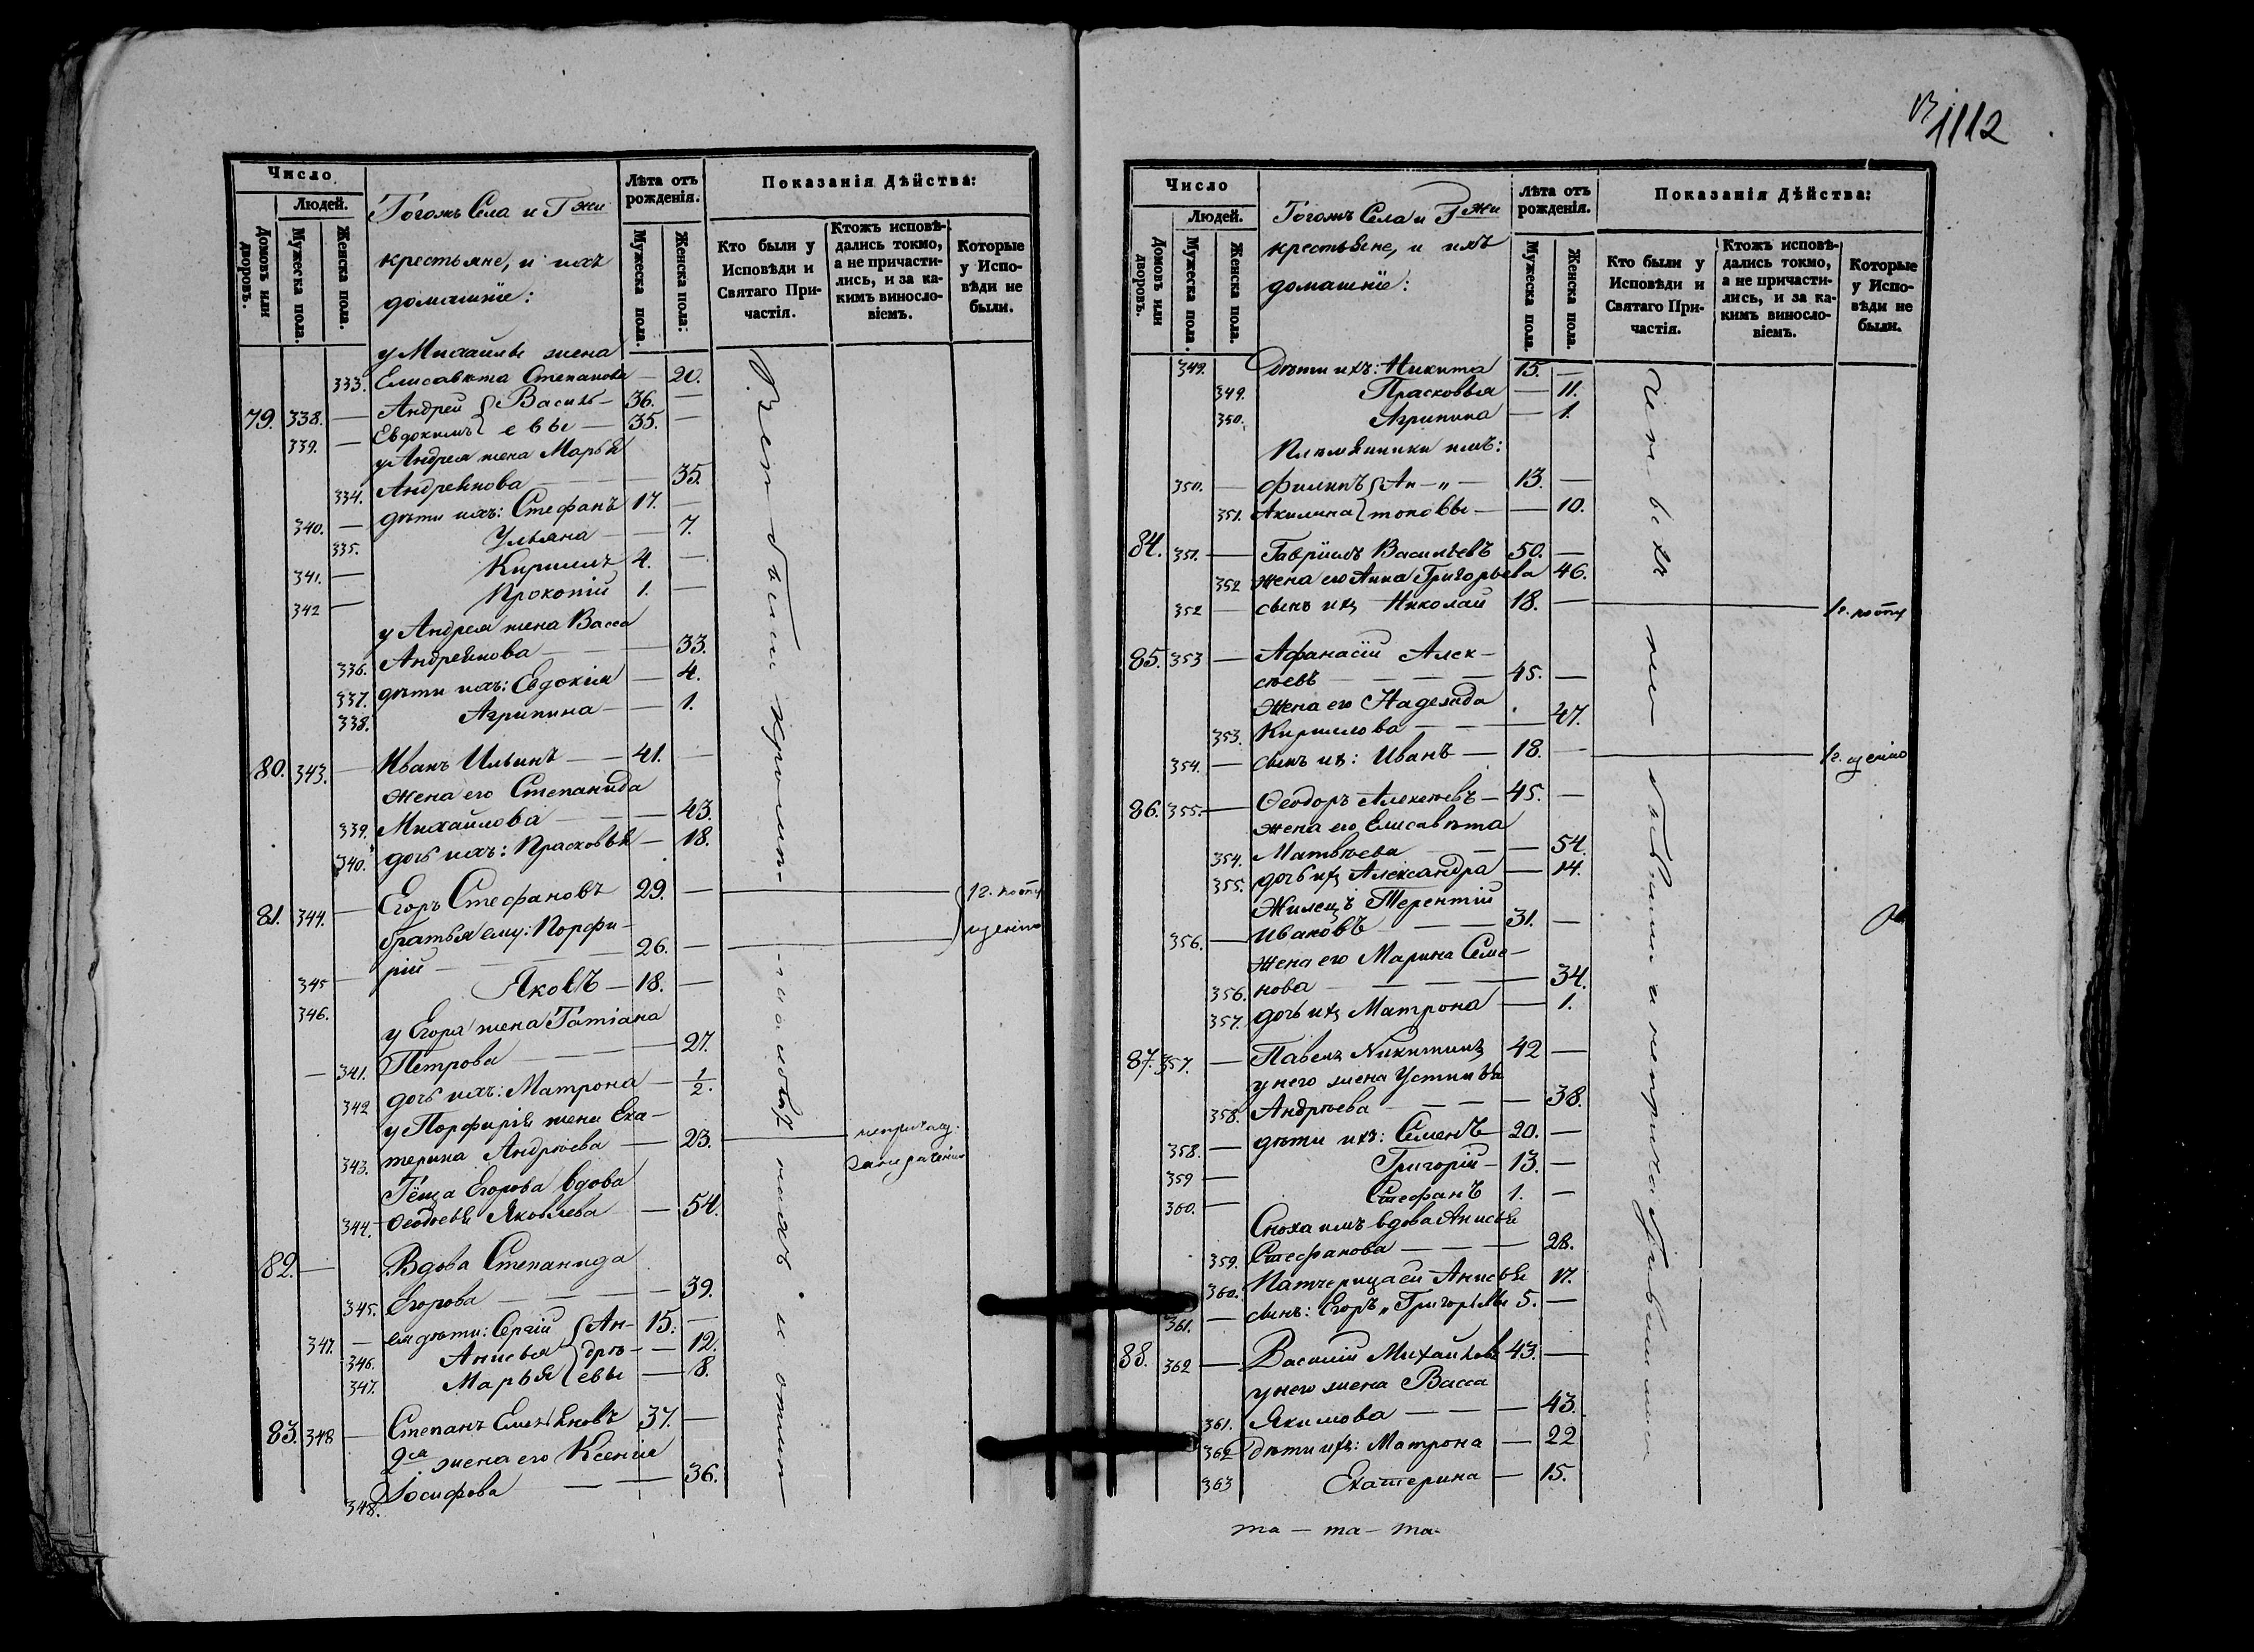 Число
Людей.
Домовъ или дворовъ.
Мужеска пола.
Женска пола.
Тогожъ Села и Гжи
крестьяне, и ихъ
домашніе:
Лѣта отъ рожденія.
Мужеска пола.
Женска пола:
Показанія Дѣйства:
Кто были у Исповѣди и Святаго Причастія.
Ктожъ исповѣдались токмо, а не причастились, и за какимъ винословіемъ.
Которые у Исповѣди не были.
у Михайлы жена
333. Елисавета Степанова — 20.
79. 338. — Андрей { Василь— 36. —
339. — Евдокимъ { евы — 35. —
у Андрея жена Марья
334. Андреянова — 35.
340. — дѣти ихъ: Стефанъ 17. —
335. Ульяна — 7.
341. — Кириллъ 4. —
342 — Прокопій 1. —
у Андрея жена Васса
336. Андреянова — 33.
337. дѣти ихъ: Евдокія — 4.
338. Агрипина — 1.
80. 343. — Иванъ Ильинъ — 41. —
жена его Степанида
339. Михайлова — 43.
340. дочь ихъ: Прасковья — 18.
81. 344. — Егоръ Стефановъ 29. —
братья ему: Порфи-
345 — рій — 26. —
346. Яковъ — 18. —
у Егора жена Татіана
341. Петрова — 27.
342 дочь ихъ: Матрона — 1/2.
у Порфирія жена Ека-
343. терина Андреева — 23.
Тёща Егорова вдова
344. Ѳеодосья Яковлева — 54.
82. — Вдова Степанида
345. Егорова — 39.
347. — ея дѣти: Сергій { Ан- 15. —
346. Анисья { дре- — 12.
347. Марья { евы — 8.
83. 348 — Степанъ Емельяновъ 37. —
2ая жена его Ксенія
348. Іосифова — 36.
1112
Число
Людей.
Домовъ или дворовъ.
Мужеска пола.
Женска пола.
Тогожъ Села и Гжи
крестьяне, и ихъ
домашніе:
Лѣта отъ рожденія.
Мужеска пола.
Женска пола.
Показанія Дѣйства:
Кто были у Исповѣди и Святаго Причастія.
Ктожъ исповѣдались токмо, а не причастились, и за какимъ винословіемъ.
Которые у Исповѣди не были.
349. Дѣти ихъ: Никита 15. —
349. Прасковья — 11.
350. Агрипина — 1.
Племянники имъ:
350. — Филипъ { Ан — 13. —
351. Акилина { тоновы — 10.
84. 351. — Гавріилъ Васильевъ 50. —
352 жена его Анна Григорьева 46.
352 — сынъ ихъ Николай 18. —
85. 353 — Афанасій Алек-
сѣевъ — 45. —
жена его Надежда
353. Кирилова — 47.
354. — сынъ ихъ: Иванъ — 18. —
86. 355. — Ѳеодоръ Алексѣевъ — 45. —
жена его Елисавета
354. Матвѣева — 54.
355. дочь ихъ Александра — 14.
Жилецъ Терентій
356. — Ивановъ — 31. —
жена его Марина Семе-
356. нова — 34.
357. дочь ихъ Матрона — 1.
87. 357. — Павелъ Никитинъ 42 —
у него жена Устинья
358. Андреева — 38.
358. — дѣти ихъ: Семенъ 20. —
359 — Григорій — 13. —
360. — Стефанъ 1. —
Сноха имъ вдова Анисья
359. Стефанова — 28.
360. Патчерица ей Анисья 17.
361. — сынъ: Егоръ Григорьевъ 5. —
88. 362 — Василій Михайловъ 43. —
у него жена Васса
361. Якимова — 43.
362 дѣти ихъ: Матрона — 22
363 Екатерина — 15.
та — та — та